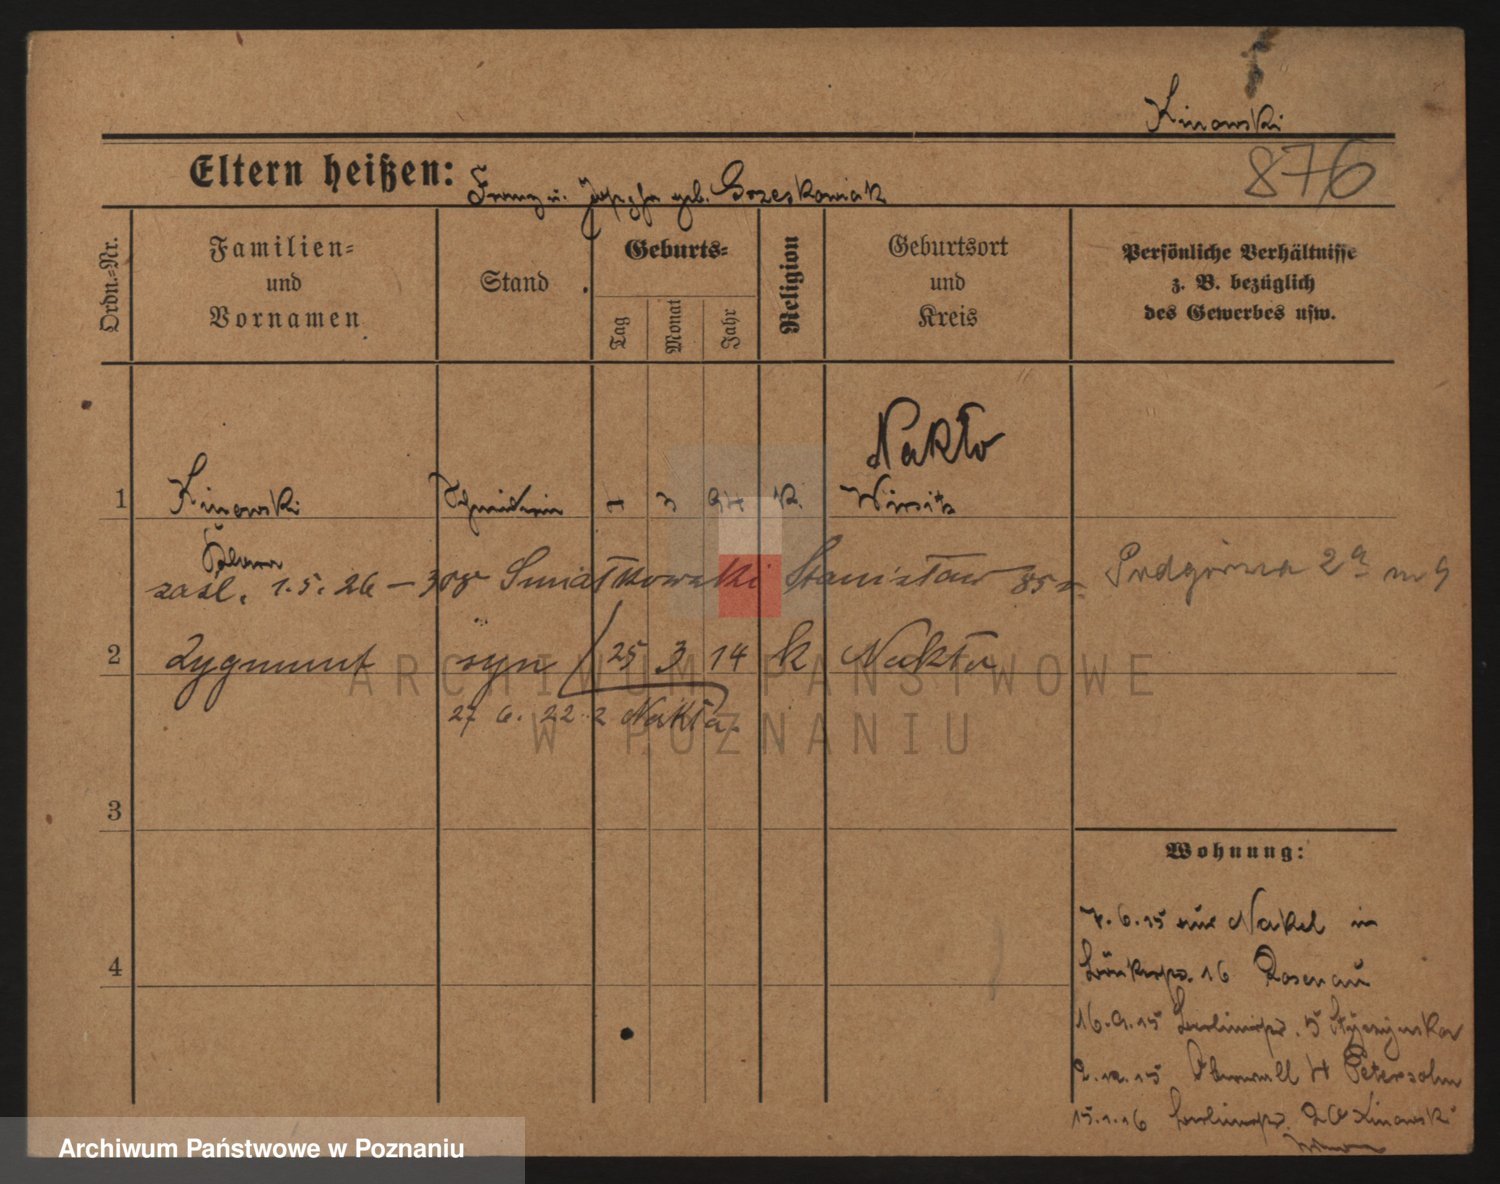 Kinowski
876
Eltern heißen: Franz u. Josefa geb. Grzeskowiak
Ordn.-Nr.
Familien-
und
Vornamen
Stand
Geburts-
Tag
Monat
Jahr
Religion
Geburtsort
und
Kreis
Persönliche Verhältnisse
z. B. bezüglich
des Gewerbes usw.
Nakło
1 Kinowski 3 94 k. Wirsitz
zaśl. 1.5.26 – Smiatkowski Stanisław Podgórna 2a m 9
2 Zygmunt syn 25 3 14 k Nakło
27 6. 22 z Nakła.
3
Wohnung:
7.6.15 aus Nakel in
4
16 Rosenau
16.9.15 Berlinerstr. 5
2.12.15 4 Petersohn
15.1.16 Berlinerstr. 20 Kinowski
ARCHIWUM PAŃSTWOWE
W POZNANIU
Archiwum Państwowe w Poznaniu